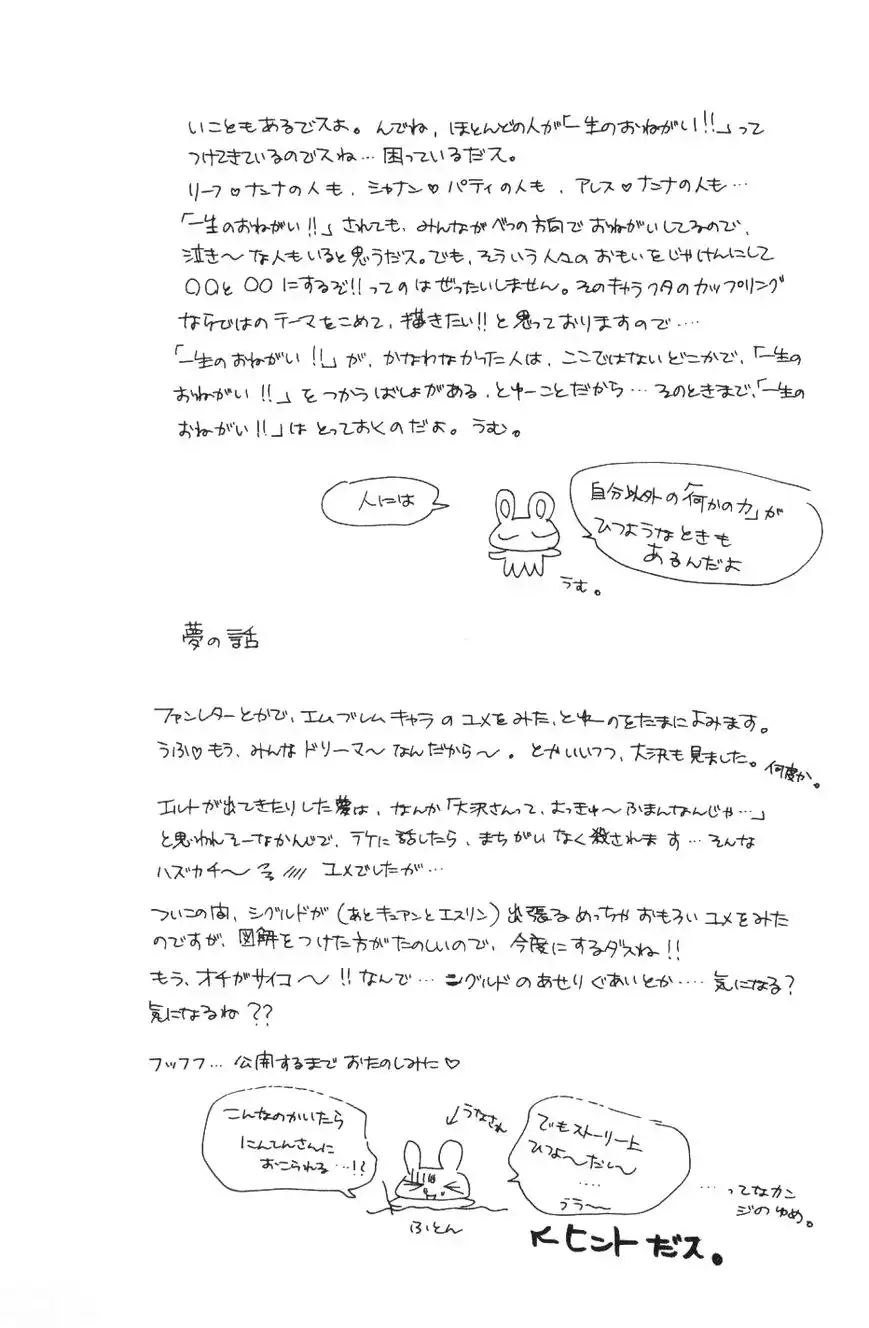 いこともあるでスよ。んでね、ほとんどの人が「一生のおねがい!!」って
つけてきているのでスね…困っているだス。
リーフ♡ナンナの人も、シャナン♡パティの人も、アレス♡ナンナの人も…
「一生のおねがい!!」されても、みんながべつの方向でおねがいしてるので、
泣き〜な人もいると思うだス。でも、そういう人々のおもいをじゃけんにして
〇〇と〇〇にするぞ!!ってのはぜったいしません。そのキャラフタのカップリング
ならではのテーマをこめて、描きたい!!と思っておりますので‥‥
「一生のおねがい!!」が、かなわなかった人は、ここではないどこかで、「一生の
おねがい!!」をつかうばしょがある、とゆーことだから…そのときまで、「一生の
おねがい!!」はとっておくのだよ。うむ。
人には
自分以外の「何かの力」が
ひつようなときも
あるんだよ
うむ。
夢の話
ファンレターとかで、エムブレムキャラのユメをみた、とゆーのをたまによみます。
うふ♡もう、みんなドリーマ〜なんだから〜。とかいいつつ、大沢も見ました。何度か。
エルトが出てきたりした夢は、なんか「大沢さんって、よっきゅ〜ふまんなんじゃ…」
と思われそーなかんじで、ラケに話したら、まちがいなく殺されます…そんな
ハズカチ〜 ユメでしたが…
ついこの間、シグルドが(あとキュアンとエスリン)出張るめっちゃおもろいユメをみた
のですが、図解をつけた方がたのしいので、今度にするダスね!!
もう、オチがサイコ〜!!なんで…シグルドのあせりぐあいとか‥‥気になる?
気になるね??
フッフフ…公開するまでおたのしみに♡
こんなのかいたら
にんてんさんに
おこられる…!?
うなされ
ふとん
でもストーリー上
ひつよ〜だし〜
‥‥
うう〜
…ってなカン
ジのゆめ。
←ヒントだス。